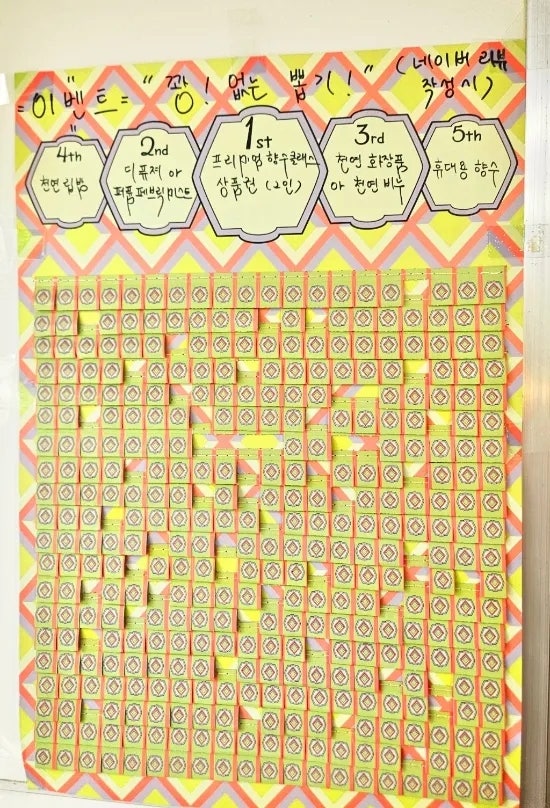 "이벤트" "꽝! 없는 뽑기!" (네이버 리뷰
작성시)
4th
천연 립밤
2nd
디퓨져 or
퍼퓸 패브릭미스트
1st
프리미엄 향수클래스
상품권 (2인)
3rd
천연 화장품
or 천연 비누
5th
휴대용 향수